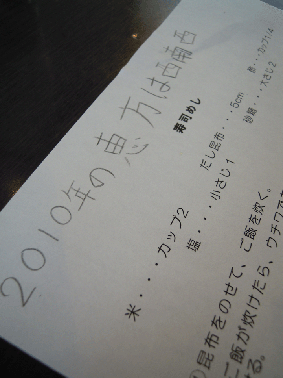 2010年の恵方は西南西
寿司めし
米・・・・カップ2
だし昆布・・・・5cm
塩・・・・小さじ1
砂糖・・・大さじ2
昆布をのせて、ご飯を炊く。
ご飯が炊けたら、ウチワで